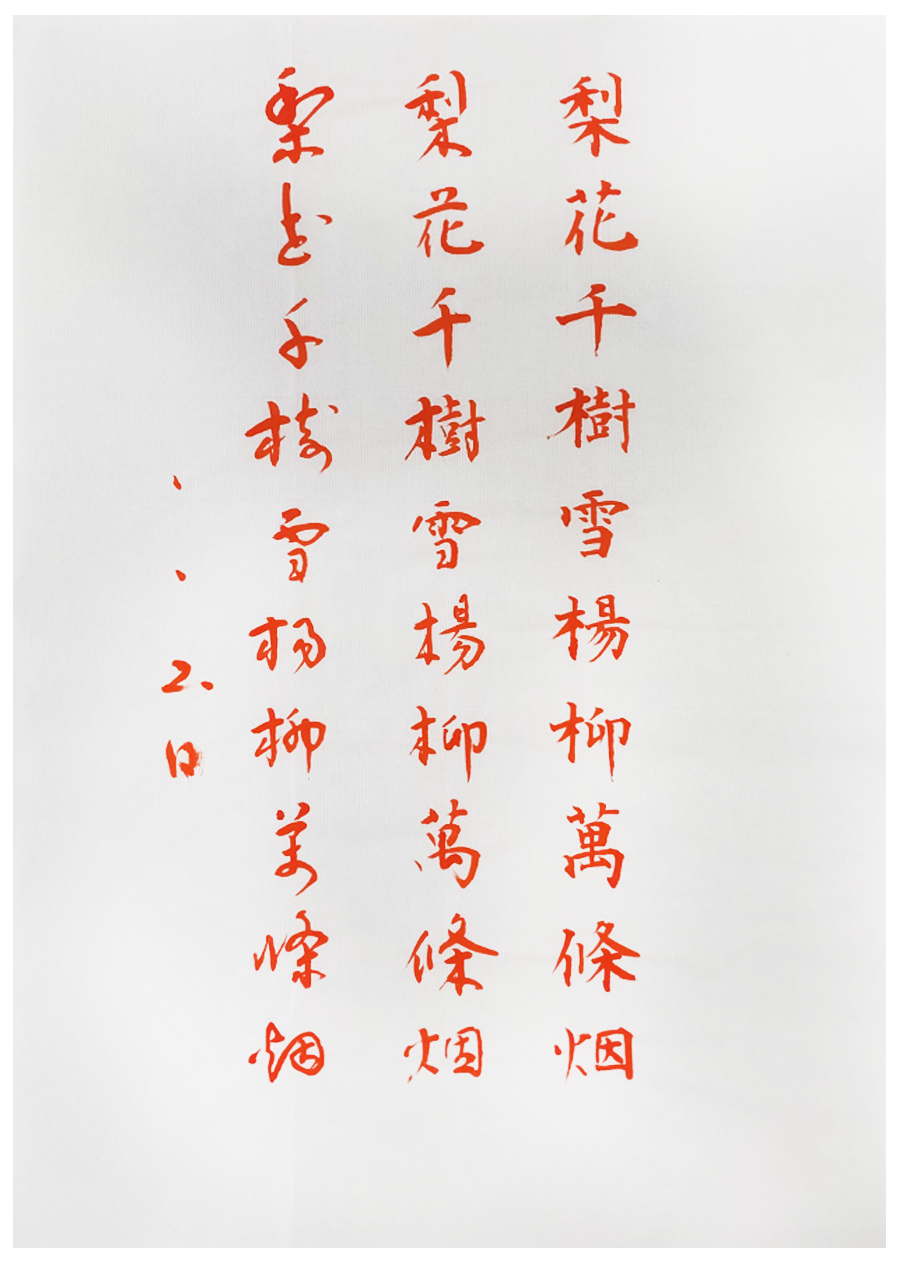 梨花千樹雪楊柳萬條烟
梨花千樹雪楊柳萬條烟
梨花千樹雪楊柳萬條烟